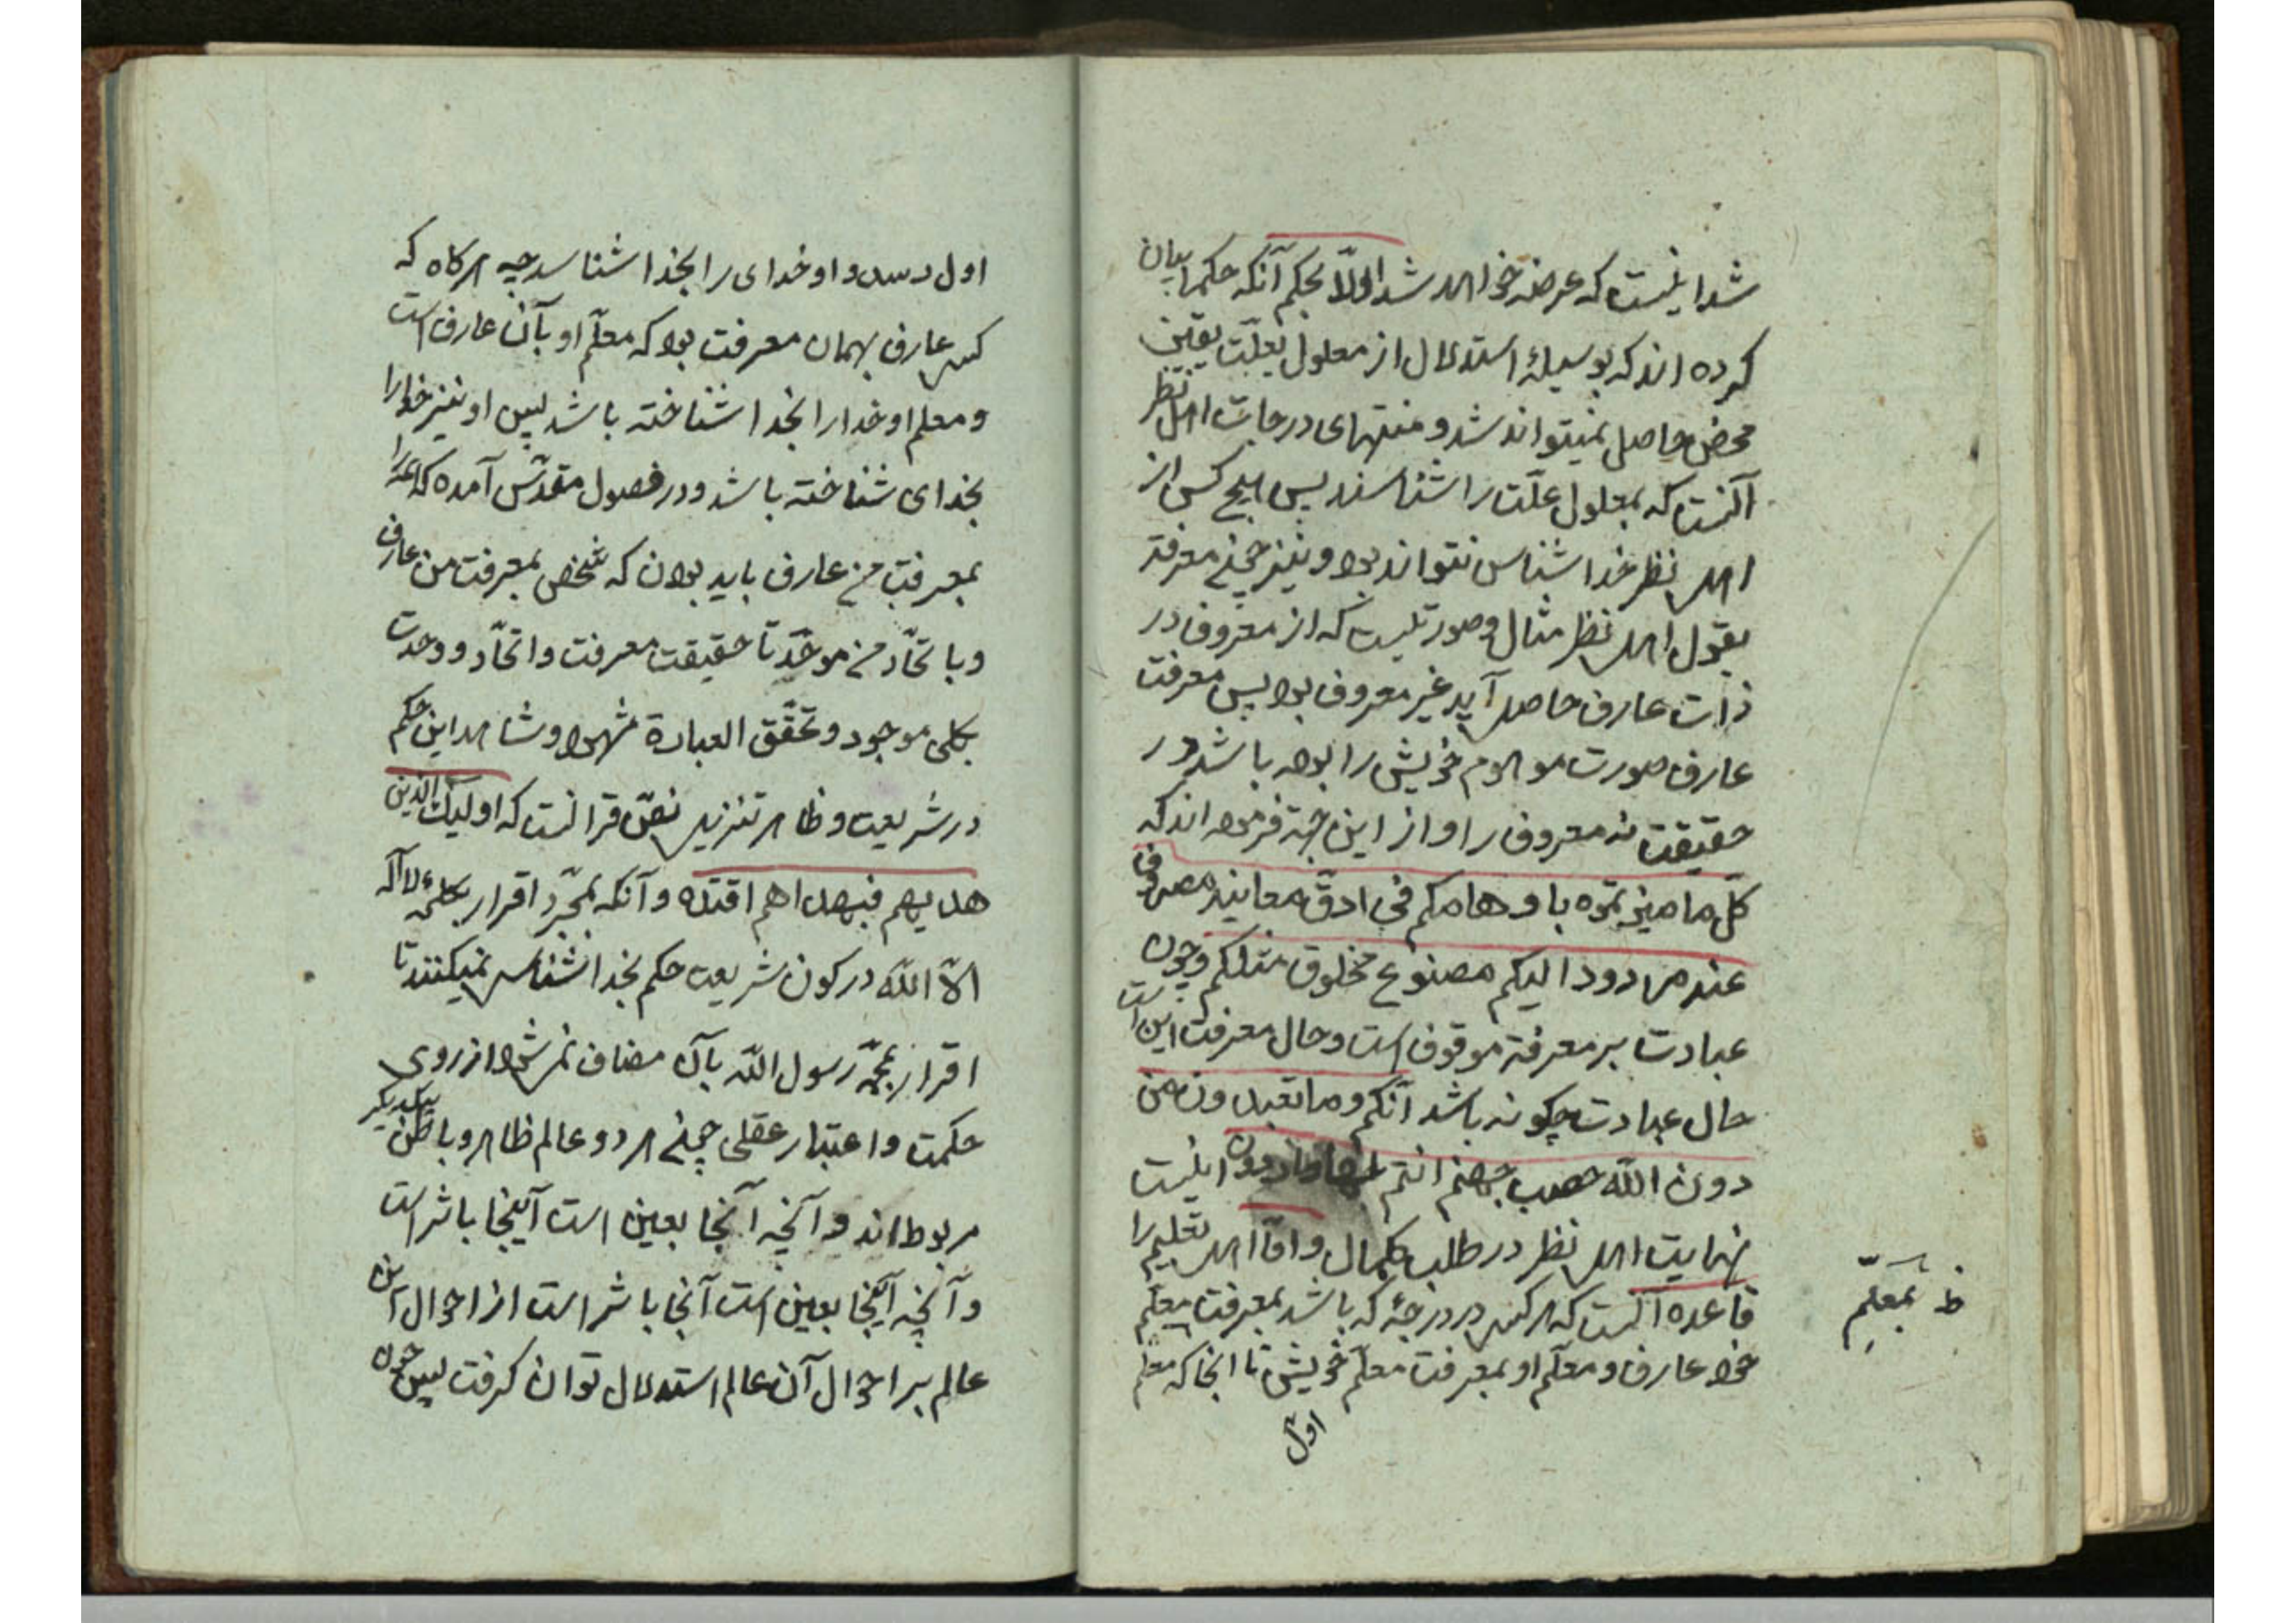 شد اینست که عرضه خواهد شد اولا بحکم آنکه حکما بیان
کرده اند که بوسیلهٔ استدلال از معلول بعلّت یقین
محض حاصل نمیتواند شد و منتهای درجات اهل نظر
آنست که بمعلول علّت را شناسند پس هیچ کس از
اهل نظر خدا شناس نتواند بود و نیز چون معرفة
بقول اهل نظر مثال و صورتیست که از معروف در
ذات عارف حاصل آید غیر معروف بود پس معرفت
عارف صورت موهوم خویش را بوده باشد در
حقیقت نه معروف را و از این جهة فرموده اند که
کلّ ما میزتموه باوهامکم فی ادقّ معانیه مصروف
عند مردود الیکم مصنوع مخلوق مثلکم و چون
عبادت بر معرفة موقوف است و حال معرفت این است
حال عبادت چکونه باشد انکم وما تعبدون من
دون اللّه حصب جهنم انتم لها واردون اینست
نهایت اهل نظر در طلب کمال و امّا اهل تعلیم را
قاعده آنست که هر کس در درجهٔ که باشد بمعرفت معلّم
خود عارف و معلّم او بمعرفت معلّم خویش تا انجا که معلم
اول
ظ بمعلّم
اول رسد و او خدای را بخدا شناسد چه هرکاه که
کسی عارف بهمان معرفت بود که معلّم او بآن عارف است
و معلم او خدا را بخدا شناخته باشد پس او نیز خدا را
بخدای شناخته باشد و در فصول مقدّس آمده که
بمعرفت من عارف باید بودن که شخص بمعرفت من عارف
و باتحّاد من موحّد تا حقیقت معرفت و اتحّاد و وحدت
بکلی موجود و تحقّق العبادة مشهود و شاهد این حکم
در شریعت و ظاهر تنزیل نصّ قرانست که اولیک الذین
هدیهم فبهداهم اقتده و آنکه بمجرّد اقرار بکلمهٔ لا اله
الّا اللّه در کون شریعت حکم بخدا شناسی نمیکنند تا
اقرار بمحمّد رسول اللّه بآن مضاف نمی شود از روی
حکمت و اعتبار عقلی چون هر دو عالم ظاهر و باطن بیکدیگر
مربوط اند و آنچه آنجا بعین است آینجا باثر است
و آنچه آینجا بعین است آنجا باثر است از احوال این
عالم بر احوال آن عالم استدلال توان کرفت پس چون